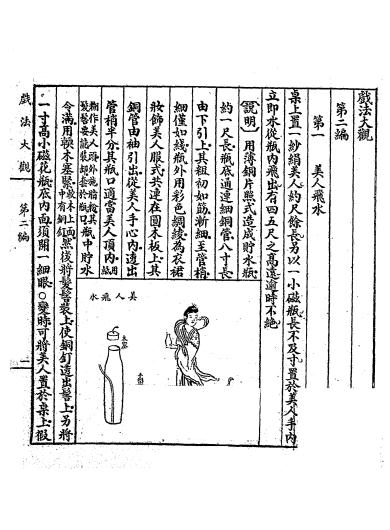 戲法大觀
第二編
第一　美人飛水
桌上置一紗絹美人約尺餘長另以一小磁瓶長不及寸置於美人手內
立即水從瓶內飛出有四五尺之高還逾時不絕
(說明)用薄銅片照式造成貯水瓶
約一尺長瓶底通連細銅管八寸長
由下引上其粗初如筯漸細至管梢
細僅如綫瓶外用彩色綢綾為衣裙
妝飾美人服式共連在圓木板上其
銅管由袖引出從美人手心內透出
管梢半分其瓶口適當美人頂內
瓶中貯水
令滿用輭木塞緊
然後將髮髻裝上使銅釘透出髻上另將
一寸高小磁花瓶底內面須開一細眼〇變時可將美人置於桌上假
美人飛水
戲法大觀
第二編